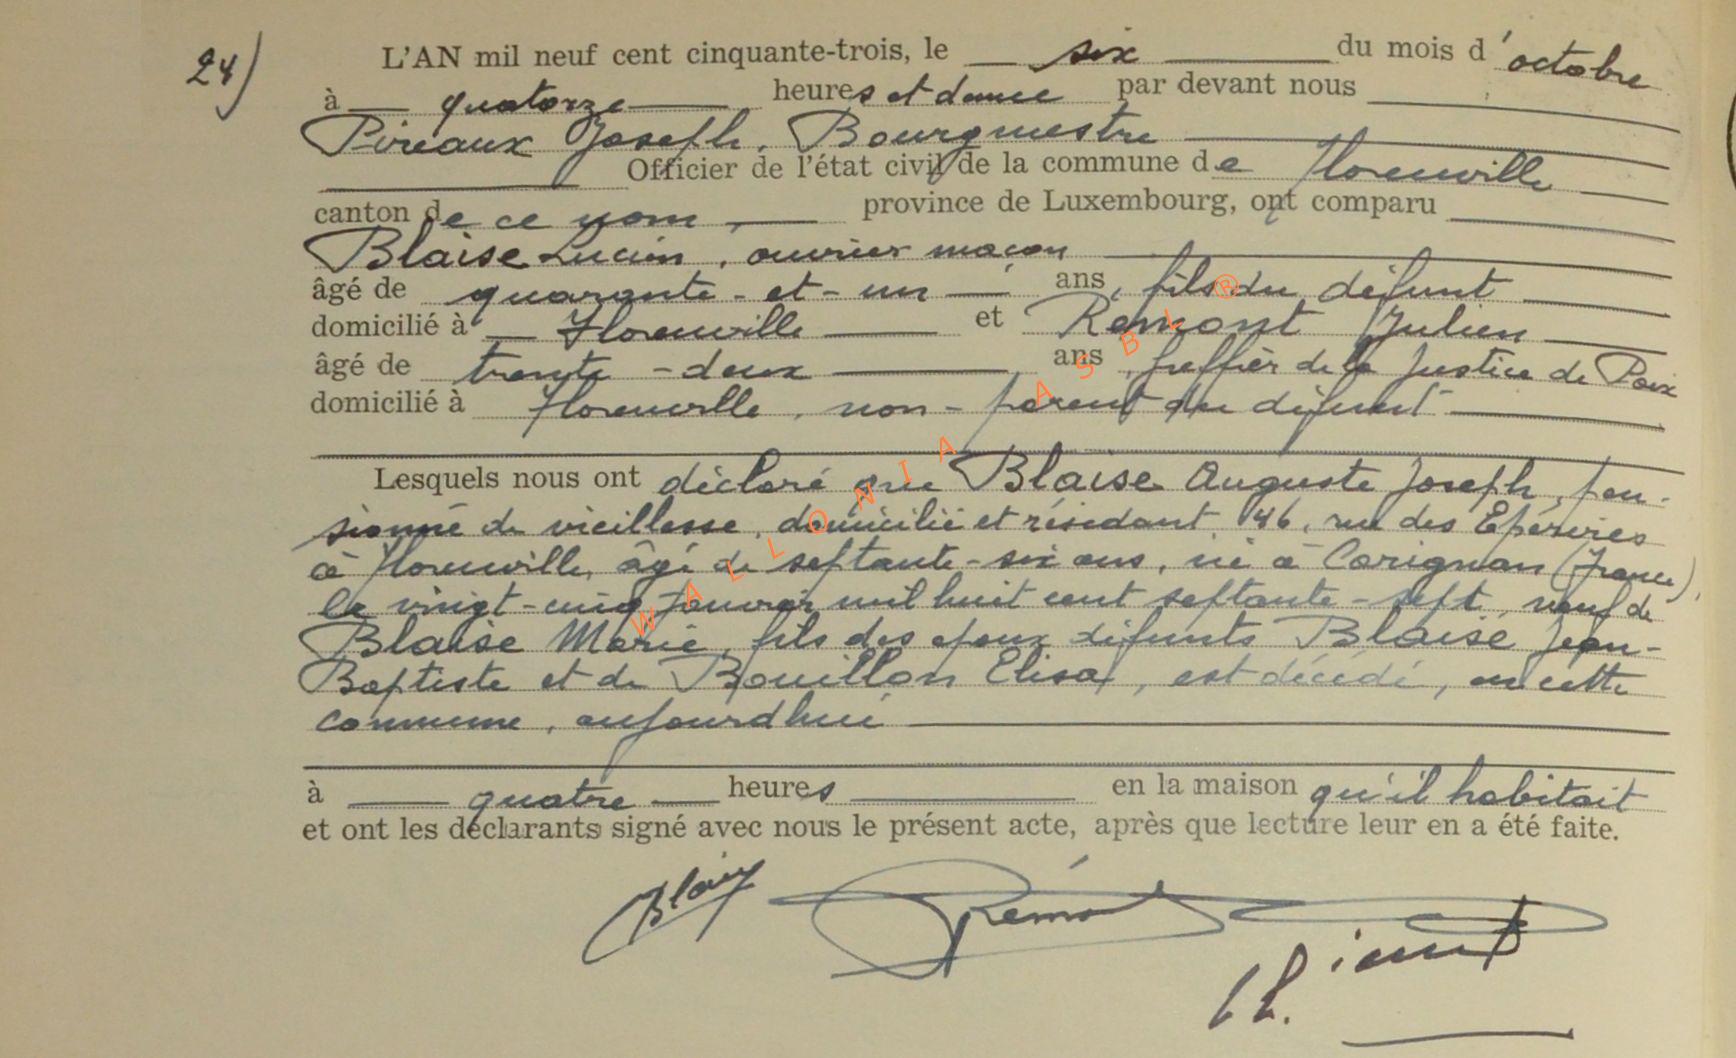 24) L'AN mil neuf cent cinquante-trois, le six du mois d'octobre
à quatorze heures et demie par devant nous
Pireaux Joseph, Bourgmestre
Officier de l'état civil de la commune de Florenville
canton de ce nom, province de Luxembourg, ont comparu
Blaise Lucien, ouvrier maçon
âgé de quarante-et-un ans, fils du défunt
domicilié à Florenville et Remont Julien
âgé de trente-deux ans, greffier de la Justice de Paix
domicilié à Florenville, non-parent du défunt
Lesquels nous ont déclaré que Blaise Auguste Joseph, pen-
sionné de vieillesse, domicilié et résidant 146, rue des Epérires
à Florenville, âgé de septante-six ans, né à Carignan (France),
le vingt-cinq janvier mil huit cent septante-sept, veuf de
Blaise Marie, fils des époux défunts Blaise Jean-
Baptiste et de Bouillon Elisa, est décédé, en cette
commune, aujourd'hui
à quatre heures en la maison qu'il habitait
et ont les déclarants signé avec nous le présent acte, après que lecture leur en a été faite.
Blaise Rémont
WALLONIA ASBL ®